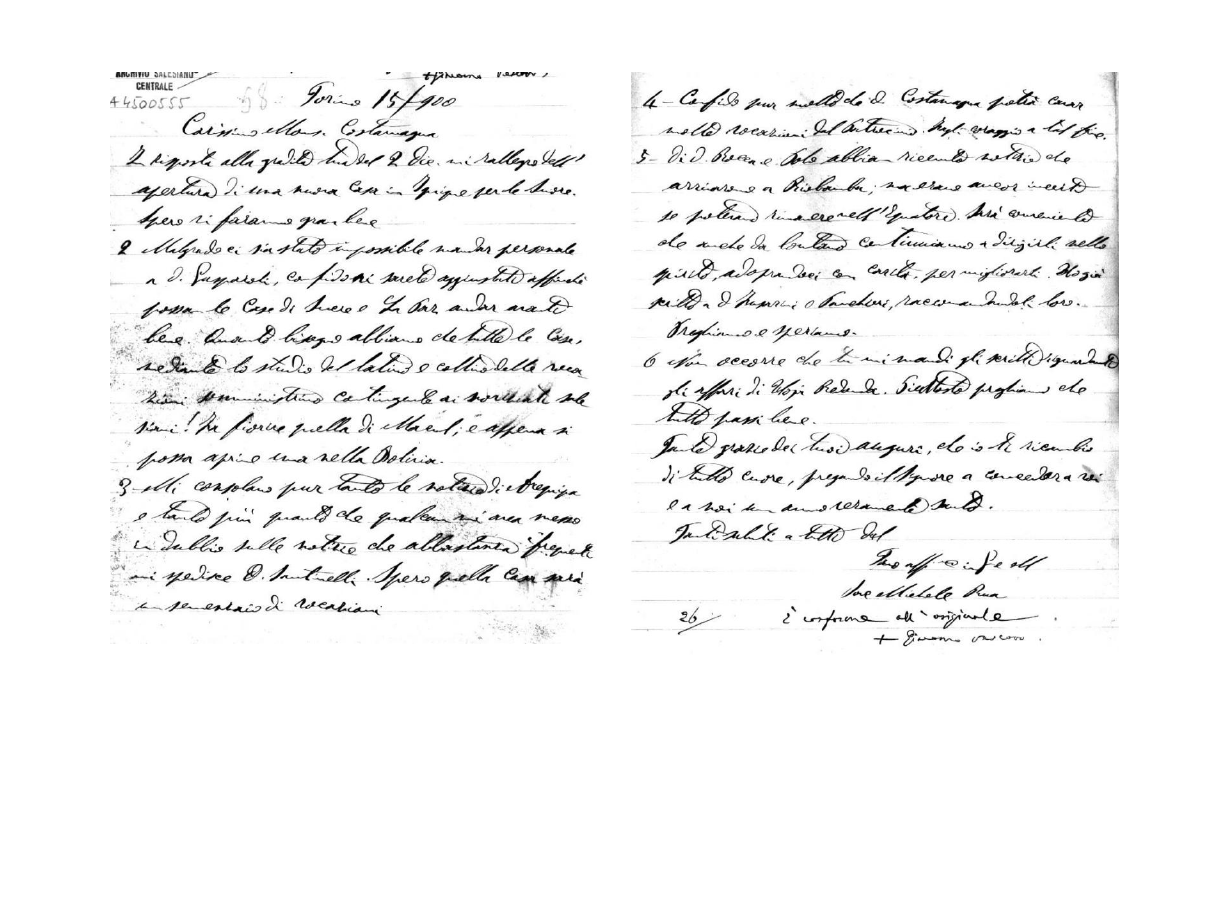 ARCHIVIO SALESIANO
CENTRALE
A4500555
58
Torino 15/1 900
Carissimo Mons. Costamagna
risposta alla gradita tua del 2 dic. mi rallegro dell'
apertura di una nuova Casa in Iquique per le Suore.
Spero vi faranno gran bene
2 Malgrado ci sia stato impossibile mandar personale
a d. Gasparoli, confido vi sarete aggiustati affinchè
possan le Case di Sucre e La Paz andar avanti
bene. Quanto bisogno abbiamo che tutte le Case,
mediante lo studio del latino e coltivo delle voca
zioni somministrino contingente ai noviziati sale
siani! Fa fiorire quella di Macul, e appena si
possa aprine una nella Bolivia.
3 - Mi consolano pur tanto le notizie di Arequipa
e tanto più quanto che qualcun mi avea messo
in dubbio sulle notizie che abbastanza frequenti
mi spedisce D. Santinelli. Spero quella Casa sarà
un semenzaio di vocazioni
4 - Confido pur molto che d. Costamagna potrà cavar
molte vocazioni dal viaggio a tal fine.
5 - Di d. Rocca e Sole abbiam ricevuto notizia che
arrivarono a Riobamba; ma erano ancor incerti
se potevano rimanere nell'Equatore. Sarà conveniente
che anche da lontano continuiamo a dirigirli nello
spirito, adoprandoci con carità, per migliorarli. Ho già
scritto a d. Fusarini o Tancheri, raccomandandoli loro.
Preghiamo e speriamo.
6 Non occorre che tu mi mandi gli scritti riguardanti
gli affari di Piuttosto preghiamo che
tutto passi bene.
Tante grazie dei tuoi auguri, che io ti ricambio
di tutto cuore, pregando il Signore a conceder a voi
e a noi un anno veramente santo.
Tanti saluti a tutti dal
Tuo aff.mo in G. e M
Sac Michele Rua
26/
È conforme all'originale
+ Giacomo vescovo.